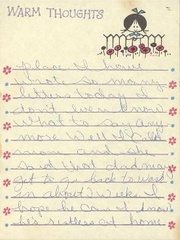 WARM THOUGHTS
place. I have
wrote so many
letters today I
don't even know
what to say any
more. Well I called
mom and she
said that dad may
get to go back to work
in about 2 weeks. I
hope he can. I know
he's restless at home